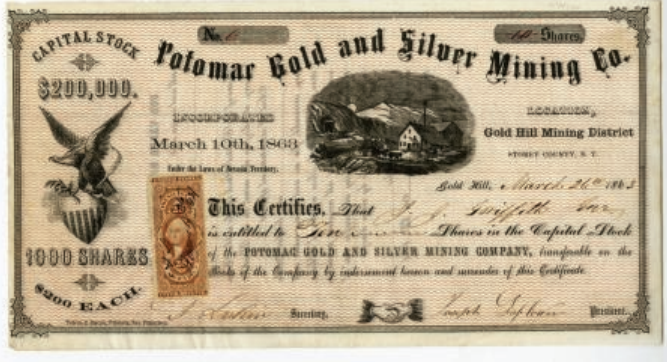 CAPITAL STOCK
$200,000.
1000 SHARES
$200 EACH.
No. 6
10 Shares.
Potomac Gold and Silver Mining Co.
INCORPORATED
March 10th, 1863
Under the Laws of Nevada Territory.
LOCATION,
Gold Hill Mining District
STOREY COUNTY, N. T.
Gold Hill, March 26th 1863
This Certifies, That J. J. Griffith
is entitled to Ten Shares in the Capital Stock
of the POTOMAC GOLD AND SILVER MINING COMPANY, transferable on the
Books of the Company by indorsement hereon and surrender of this Certificate.
Secretary.
Joseph
President.